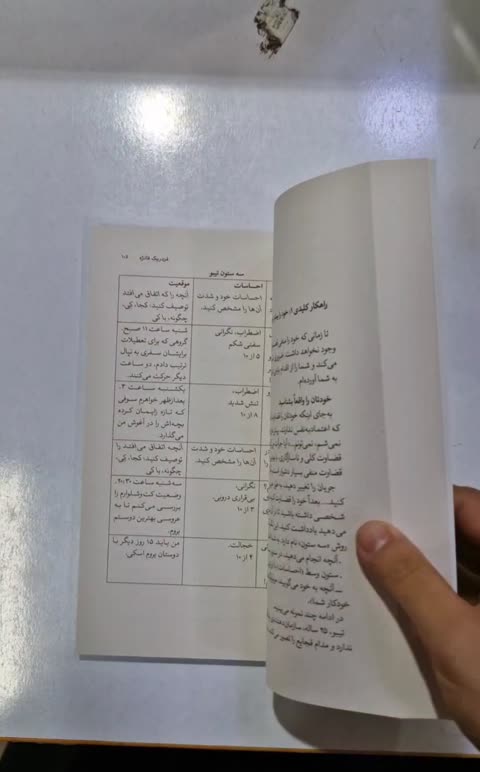 راهکار کلیدی ۱: خود را
تا زمانی که خود را منفی
وجود نخواهد داشت.
می‌کند و شما را از اقدام
به شما آورده‌ام.
خودتان را واقعاً بشناسید
به‌جای اینکه خودتان را
که اعتمادبه‌نفس ندارند،
نمی‌شم، نمی‌تونم،
قضاوت کلی و
قضاوت منفی بسیار
جریان را تغییر دهید،
کنید. بعداً خود را قضاوت
شخصی داشته باشید تا
می‌دهید یادداشت کنید.
روش «سه ستون» نام دارد.
ـ آنچه انجام می‌دهید، در
ـ ستون وسط (احساسات
ـ آنچه به خود می‌گویید
خودکار شما).
در ادامه چند نمونه
تیبو، ۲۵ ساله،
ندارد و مدام فجایع را تصور
فردریک فانژه ۱۰۵
سه ستون تیبو
موقعیت احساسات
آنچه را که اتفاق می‌افتد احساسات خود و شدت
توصیف کنید: کجا، کی، آن‌ها را مشخص کنید.
چگونه، با کی
شنبه ساعت ۱۱ صبح. اضطراب، نگرانی
گروهی که برای تعطیلات سفتی شکم
برایشان سفری به نپال ۵ از ۱۰
ترتیب دادم، دو ساعت
دیگر حرکت می‌کنند.
یکشنبه ساعت ۳ اضطراب،
بعدازظهر خواهرم سوفی تنش شدید.
که تازه زایمان کرده ۸ از ۱۰
بچه‌اش را در آغوش من
می‌گذارد.
آنچه اتفاق می‌افتد را احساسات خود و شدت
توصیف کنید: کجا، کی، آن‌ها را مشخص کنید.
چگونه، با کی
سه‌شنبه ساعت ۲۰:۳۰ نگرانی.
وضعیت کت‌وشلوارم را بی‌قراری درونی.
بررسی می‌کنم تا به ۳ از ۱۰
عروسی بهترین دوستم
بروم.
من باید ۱۵ روز دیگر با خجالت.
دوستان بروم اسکی. ۴ از ۱۰